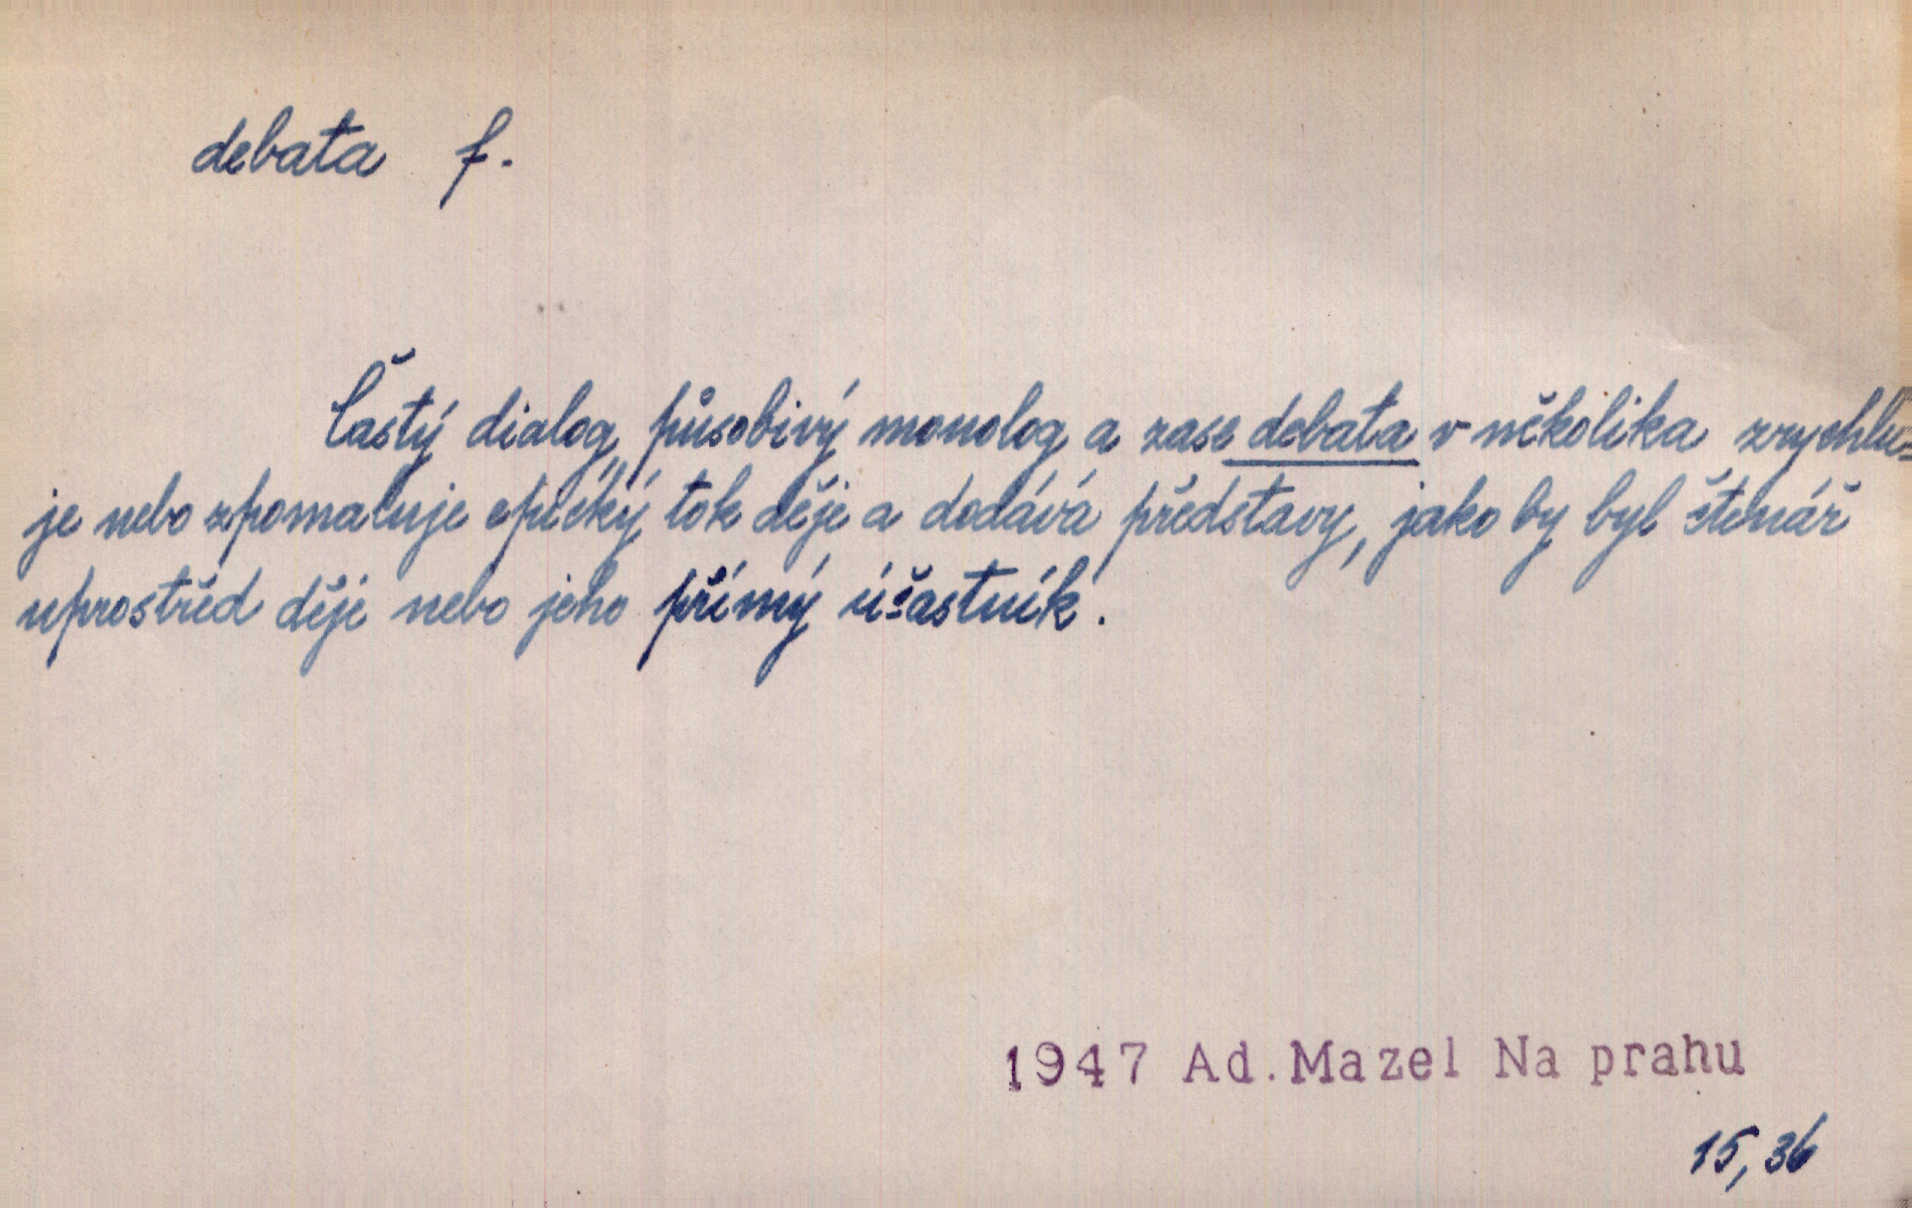 debata f.
Častý dialog, působivý monolog a zase debata v několika zrychlu=
je nebo zpomaluje epický tok děje a dodává představy, jako by byl čtenář
uprostřed děje nebo jeho přímý účastník.
1947 Ad. Mazel Na prahu
15, 36